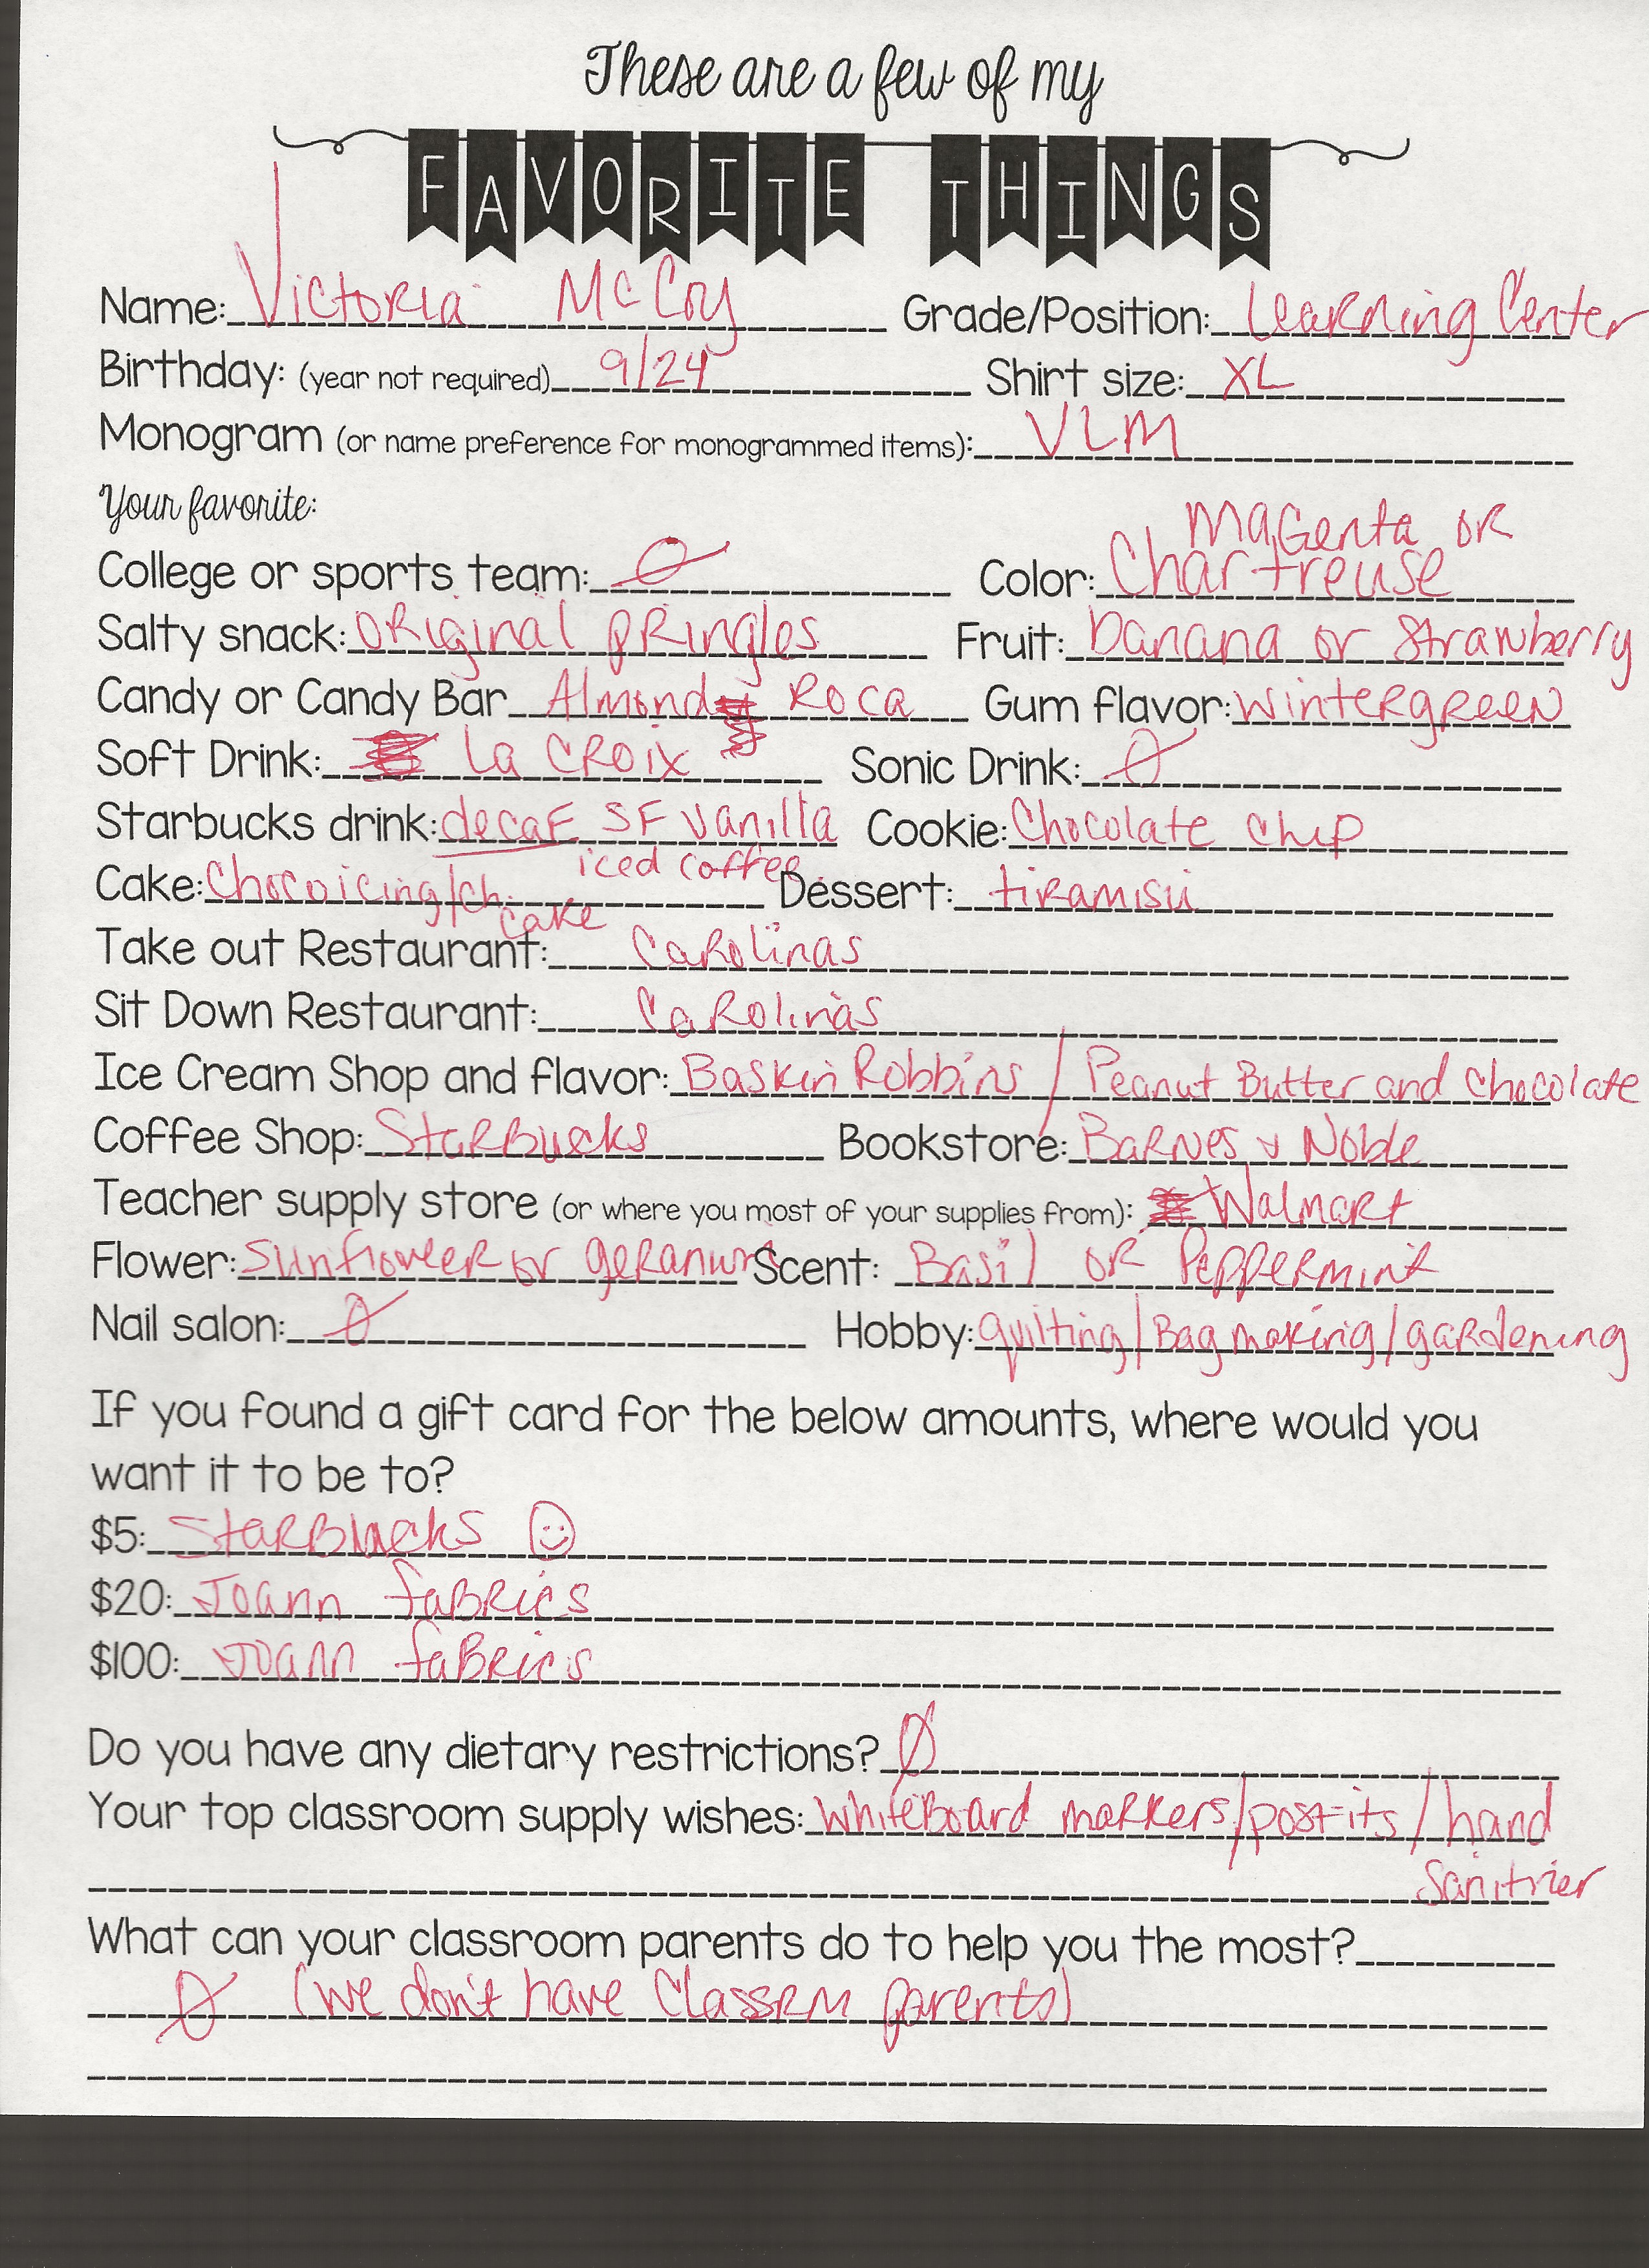 These are a few of my
FAVORITE THINGS
Name: Victoria McCoy Grade/Position: Learning Center
Birthday: (year not required) 9/24 Shirt size: XL
Monogram (or name preference for monogrammed items): VLM
Your favorite:
Magenta or
College or sports team: Ø Color: Chartreuse
Salty snack: original pringles Fruit: banana or Strawberry
Candy or Candy Bar Almond Roca Gum flavor: wintergreen
Soft Drink: La Croix Sonic Drink: Ø
Starbucks drink: decaf SF vanilla Cookie: Chocolate chip
iced coffee
Cake: Choco icing/ch. Dessert: tiramisu
cake
Take out Restaurant: Carolinas
Sit Down Restaurant: Carolinas
Ice Cream Shop and flavor: Baskin Robbins / Peanut Butter and Chocolate
Coffee Shop: Starbucks Bookstore: Barnes & Noble
Teacher supply store (or where you most of your supplies from): Walmart
Flower: Sunflower or geranium Scent: Basil or Peppermint
Nail salon: Ø Hobby: quilting/Bag making/gardening
If you found a gift card for the below amounts, where would you
want it to be to?
$5: Starbucks ☺
$20: Joann fabrics
$100: Joann fabrics
Do you have any dietary restrictions? Ø
Your top classroom supply wishes: whiteboard markers/post-its/hand
Sanitizer
What can your classroom parents do to help you the most?
Ø (we don't have Classrm parents)